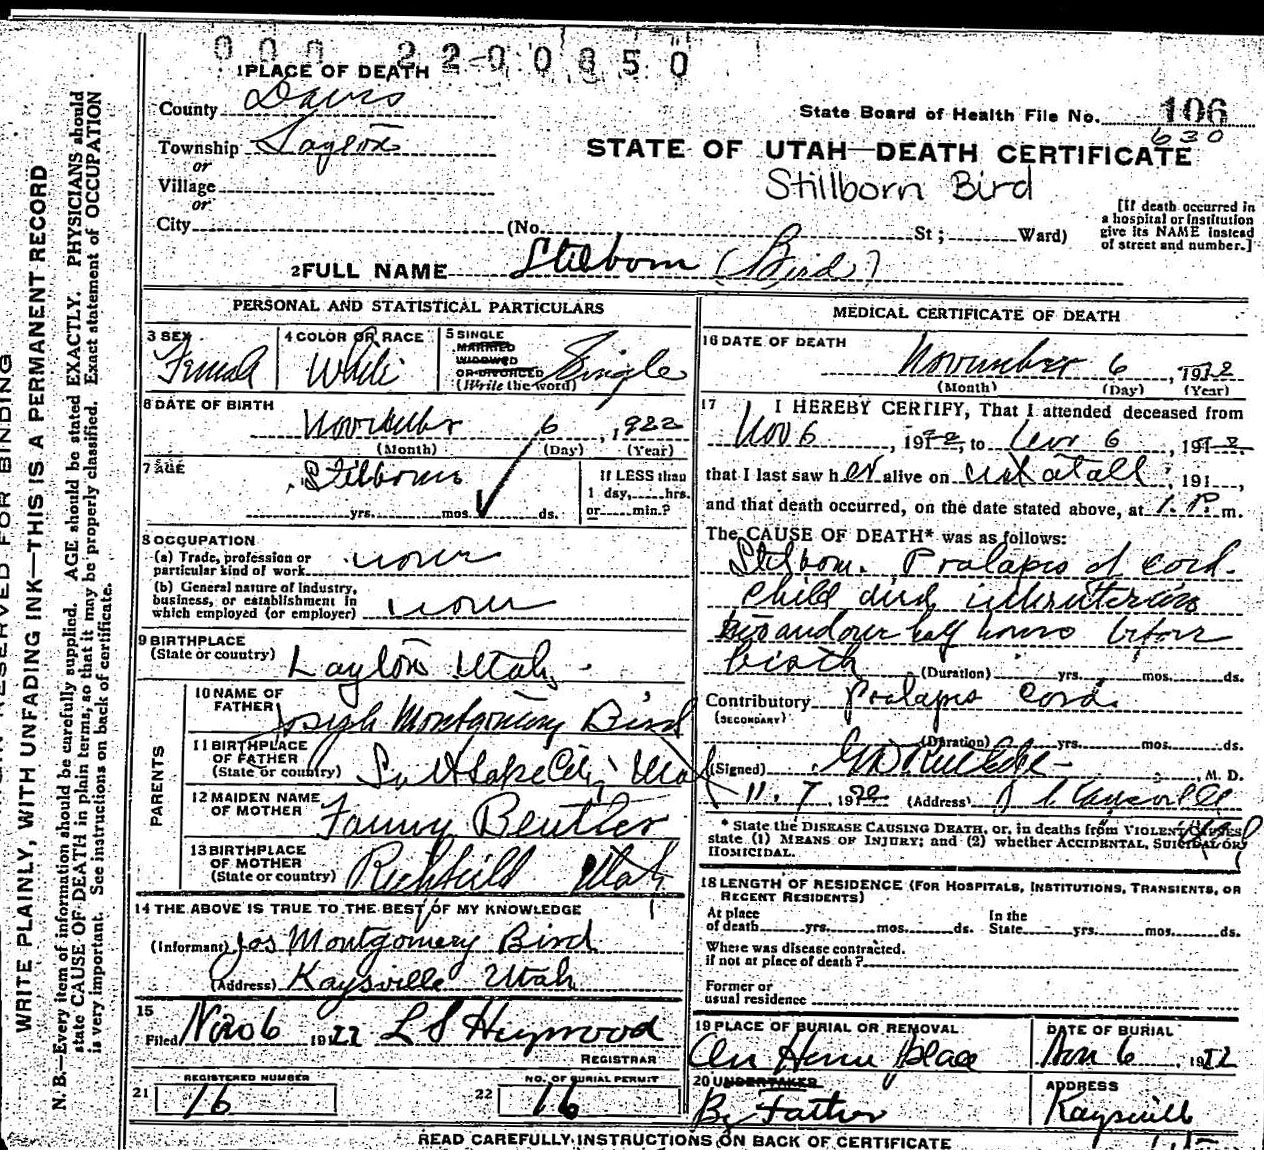 000 2200850
1 PLACE OF DEATH
County Davis
State Board of Health File No. 106
630
Township Layton
or
STATE OF UTAH—DEATH CERTIFICATE
Village
or
Stillborn Bird
City (No. St; Ward)
[If death occurred in
a hospital or institution
give its NAME instead
of street and number.]
2 FULL NAME Stilborn (Bird)
WRITE PLAINLY, WITH UNFADING INK—THIS IS A PERMANENT RECORD
N. B.—Every item of information should be carefully supplied. AGE should be stated EXACTLY. PHYSICIANS should
state CAUSE OF DEATH in plain terms, so that it may be properly classified. Exact statement of OCCUPATION
is very important. See instructions on back of certificate.
PERSONAL AND STATISTICAL PARTICULARS
3 SEX Female
4 COLOR OR RACE White
5 SINGLE
MARRIED
WIDOWED
OR DIVORCED
(Write the word) Single
6 DATE OF BIRTH
November 6, 1922
(Month) (Day) (Year)
7 AGE Stilborn
yrs. mos. ds.
If LESS than
1 day, hrs.
or min.?
8 OCCUPATION
(a) Trade, profession or
particular kind of work none
(b) General nature of industry,
business, or establishment in
which employed (or employer) none
9 BIRTHPLACE
(State or country) Layton Utah
PARENTS
10 NAME OF
FATHER Joseph Montgomery Bird
11 BIRTHPLACE
OF FATHER
(State or country) Salt Lake City, Utah
12 MAIDEN NAME
OF MOTHER Fanny Beutler
13 BIRTHPLACE
OF MOTHER
(State or country) Richfield Utah
14 THE ABOVE IS TRUE TO THE BEST OF MY KNOWLEDGE
(Informant) Jos Montgomery Bird
(Address) Kaysville Utah
15
Filed Nov 6 1922 L S Heywood
REGISTRAR
REGISTERED NUMBER
21 16
NO. OF BURIAL PERMIT
22 16
MEDICAL CERTIFICATE OF DEATH
16 DATE OF DEATH
November 6, 1922
(Month) (Day) (Year)
17 I HEREBY CERTIFY, That I attended deceased from
Nov 6, 1922, to Nov 6, 1922
that I last saw her alive on not at all, 191
and that death occurred, on the date stated above, at 1. P. m.
The CAUSE OF DEATH* was as follows:
Stilborn. Prolapis of Cord.
Child died interuterin
two and our half hours before
birth
(Duration) yrs. mos. ds.
Contributory Prolapis Cord.
(SECONDARY)
(Duration) yrs. mos. ds.
(Signed) , M. D.
11. 7, 1922 (Address) Kaysville
* State the DISEASE CAUSING DEATH, or, in deaths from VIOLENT CAUSES
state (1) MEANS OF INJURY; and (2) whether ACCIDENTAL, SUICIDAL OR
HOMICIDAL.
18 LENGTH OF RESIDENCE (FOR HOSPITALS, INSTITUTIONS, TRANSIENTS, OR
RECENT RESIDENTS)
At place
of death yrs. mos. ds.
In the
State yrs. mos. ds.
Where was disease contracted,
if not at place of death?
Former or
usual residence
19 PLACE OF BURIAL OR REMOVAL
On Home place
DATE OF BURIAL
Nov 6 1922
20 UNDERTAKER
By Father
ADDRESS
Kaysville
READ CAREFULLY INSTRUCTIONS ON BACK OF CERTIFICATE